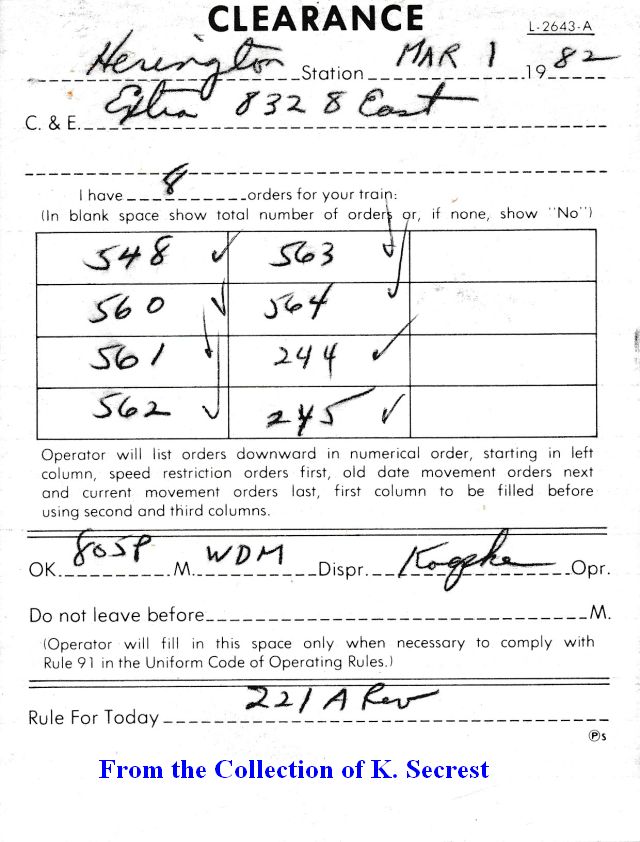 CLEARANCE
L-2643-A
Herington Station MAR 1 1982
C. & E. Extra 8328 East
I have 8 orders for your train:
(In blank space show total number of orders or, if none, show "No")
548 563
560 564
561 244
562 245
Operator will list orders downward in numerical order, starting in left
column, speed restriction orders first, old date movement orders next
and current movement orders last, first column to be filled before
using second and third columns.
OK. 805P M. WDM Dispr. Opr.
Do not leave before M.
(Operator will fill in this space only when necessary to comply with
Rule 91 in the Uniform Code of Operating Rules.)
Rule For Today 221 A Rev
Ⓟs
From the Collection of K. Secrest